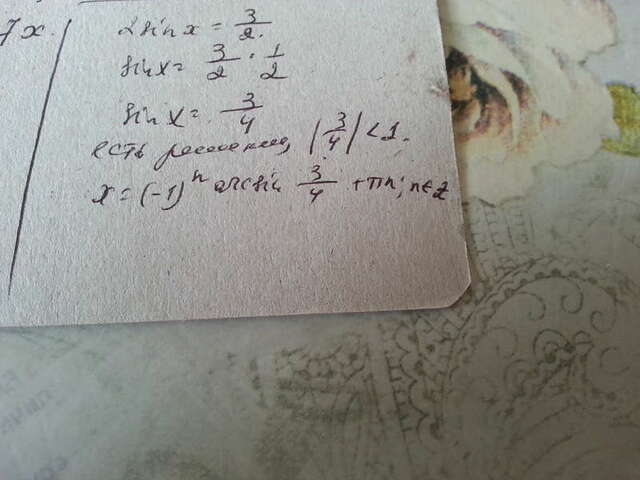 7x.
2sin x = 3/2
sin x = 3/2 · 1/2
sin x = 3/4
есть решения, |3/4| < 1.
x = (-1)^n arcsin 3/4 + πn; n∈Z